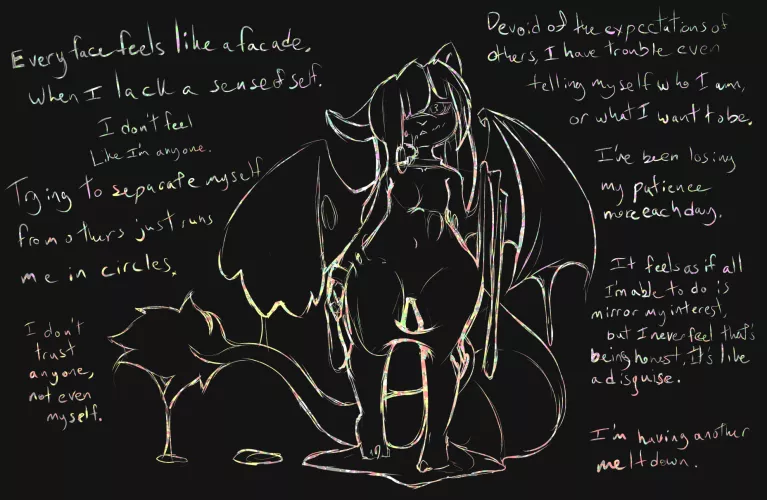 Every face feels like a facade,
when I lack a sense of self.
I don't feel
Like I'm anyone.
Trying to separate myself
from others just runs
me in circles.
I don't
trust
anyone,
not even
myself.
Devoid of the expectations of
others, I have trouble even
telling myself who I am,
or what I want to be.
I've been losing
my patience
more each day.
It feels as if all
I'm able to do is
mirror my interest,
but I never feel that's
being honest, It's like
a disguise.
I'm having another
meltdown.